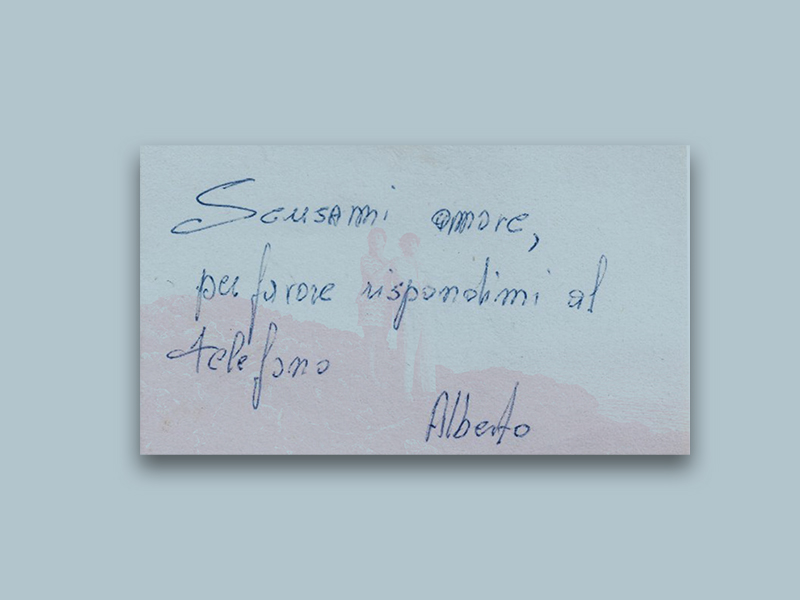 Scusami amore,
per favore rispondimi al
telefono
Alberto